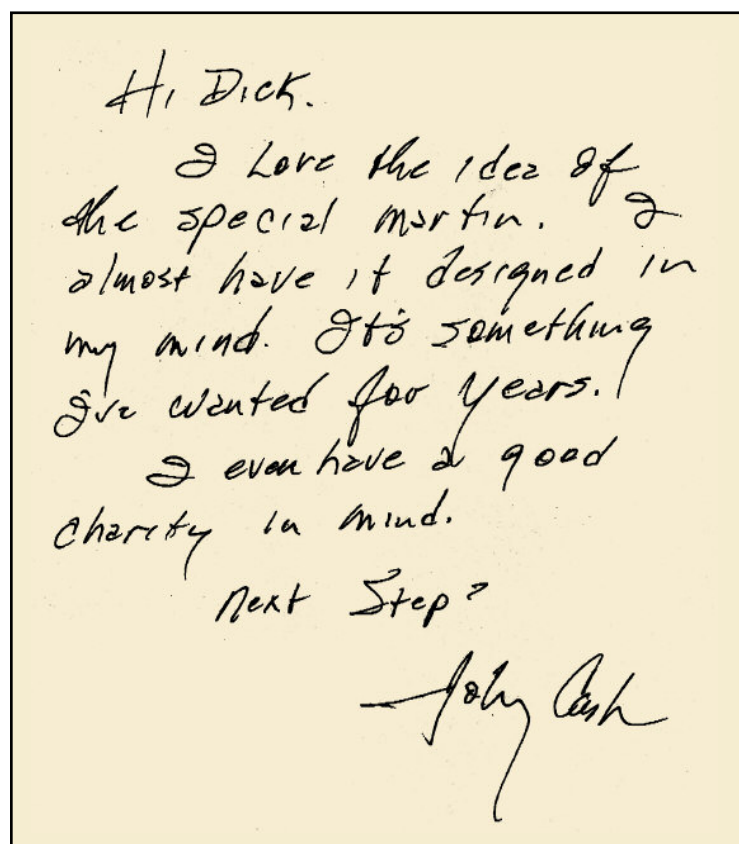 Hi Dick.
I Love the idea of
the special martin. I
almost have it designed in
my mind. It's something
I've wanted for years.
I even have a good
charity in mind.
Next Step?
John Cash